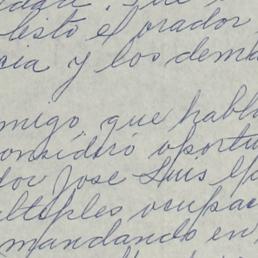 listo el orador
cia y los dem
migo, que habl
onsideró oport
dor Jose Luis
ltiples ocupac
mandando en